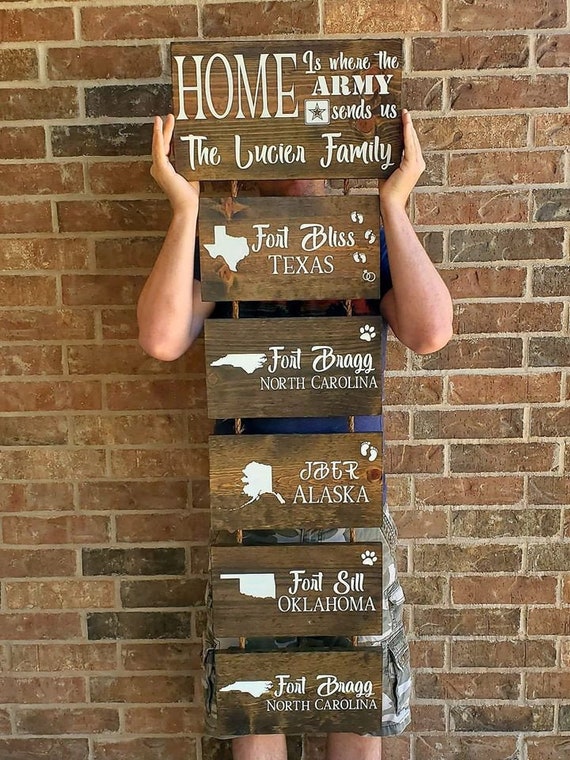 HOME Is where the
ARMY
sends us
The Lucier Family
Fort Bliss
TEXAS
Fort Bragg
NORTH CAROLINA
JBER
ALASKA
Fort Sill
OKLAHOMA
Fort Bragg
NORTH CAROLINA